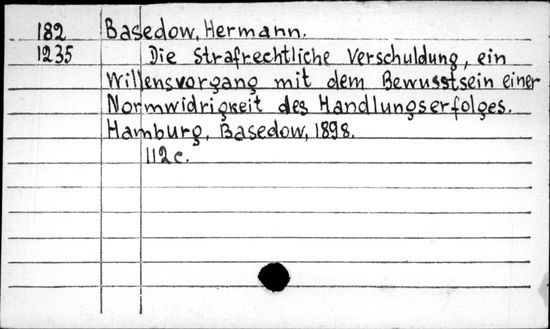 182 Basedow, Hermann.
1235 Die Strafrechtliche Verschuldung, ein
Willensvorgang mit dem Bewusstsein einer
Normwidrigkeit des Handlungserfolges.
Hamburg, Basedow, 1898.
112c.